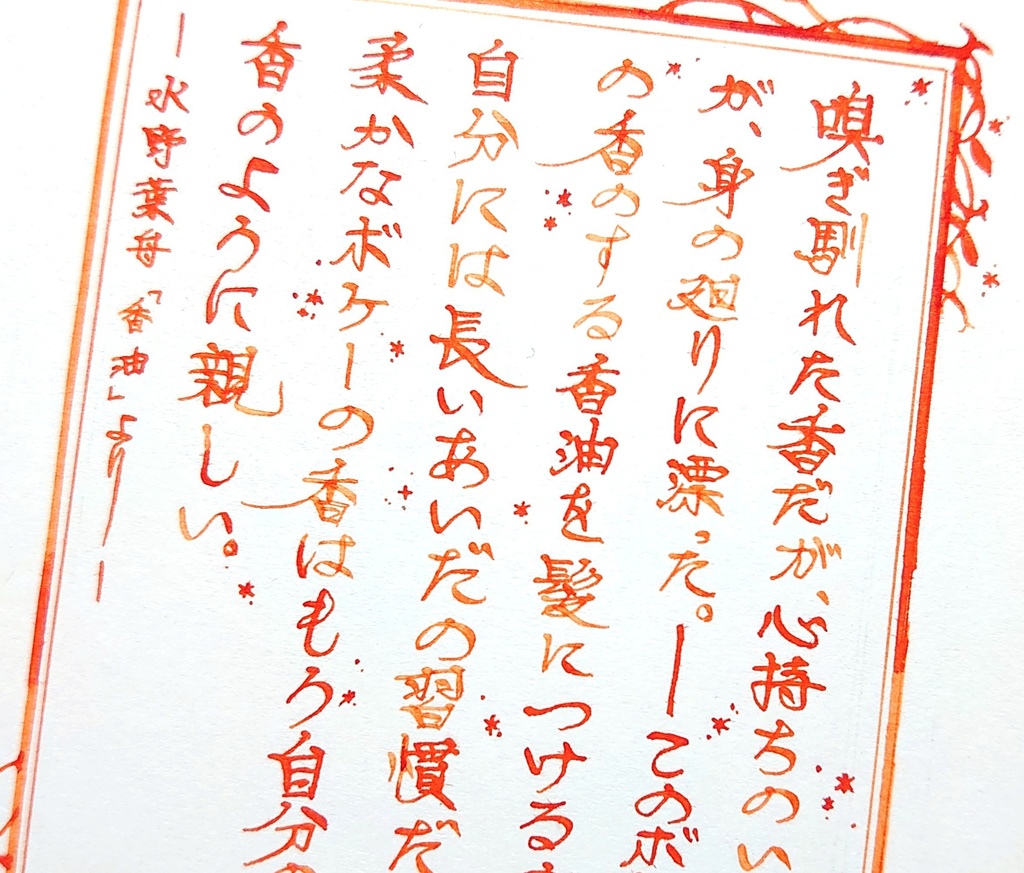 嗅ぎ馴れた香だが、心持ちのい
が、身の廻りに漂った。――このボ
の香のする香油を髪につける
自分には長いあいだの習慣だ
柔かなボケーの香はもう自分
香のように親しい。
―水野葉舟「香油」より――